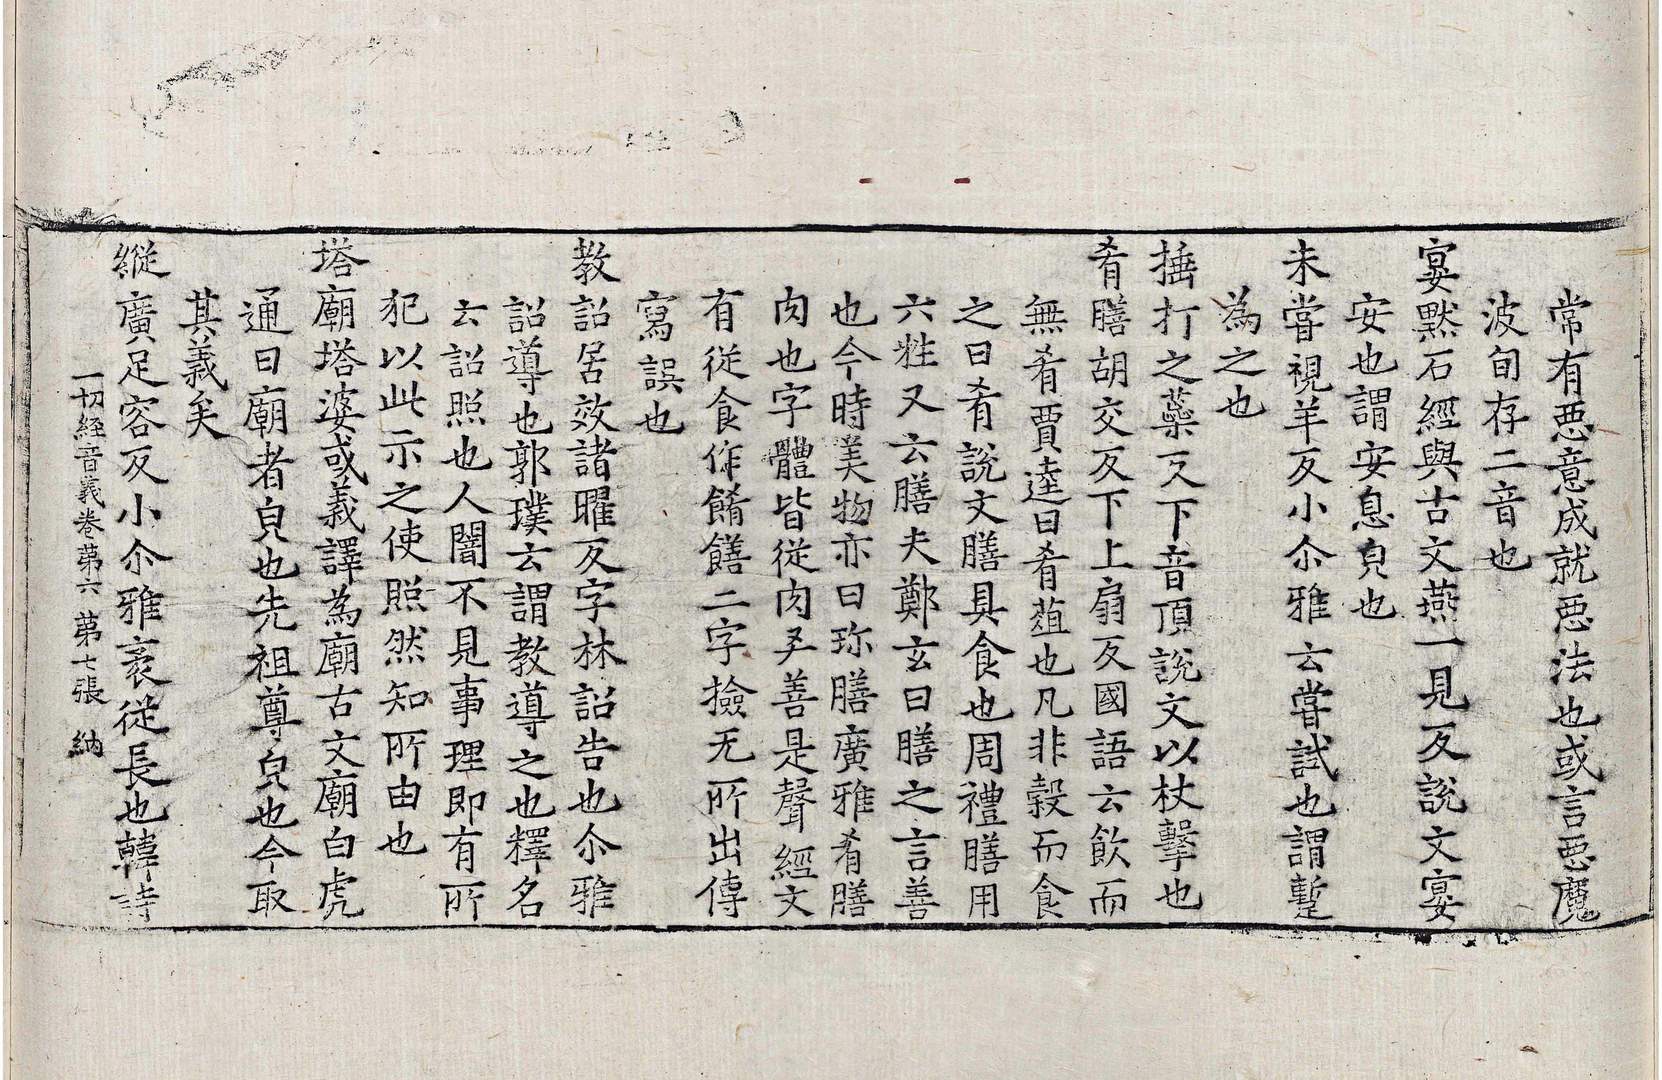 常有惡意成就惡法也或言惡魔
波旬存二音也
宴黙石經與古文燕一見反說文宴
安也謂安息皃也
未嘗視羊反小尒雅云甞試也謂蹔
為之也
捶打之蘂反下音頂說文以杖擊也
肴膳胡交反下上扇反國語云飲而
無肴賈逵曰肴葅也凡非穀而食
之曰肴說文膳具食也周禮膳用
六牲又云膳夫鄭玄曰膳之言善
也今時美物亦曰珎膳廣雅肴膳
肉也字體皆從肉爻善是聲經文
有從食作餚饍二字撿无所出傳
寫誤也
教詔居效諸曜反字林詔告也尒雅
詔導也郭璞云謂教導之也釋名
云詔照也人闇不見事理即有所
犯以此示之使照然知所由也
塔廟塔婆或義譯為廟古文廟白虎
通曰廟者皃也先祖尊皃也今取
其義矣
縱廣足容反小尒雅袤從長也韓詩
一切經音義卷苐六 苐七張 納